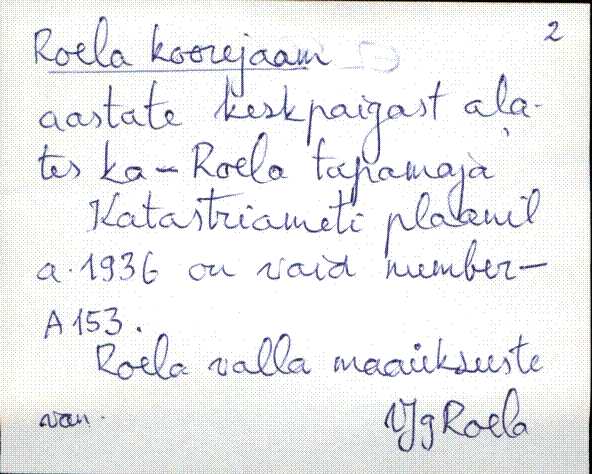 2
Roela koorejaam
aastate keskpaigast ala-
tes ka - Roela tapamaja
Katastriameti plaanil
a. 1936 on vaid number -
A 153.
Roela valla maaüksuste
van. VJg Roela